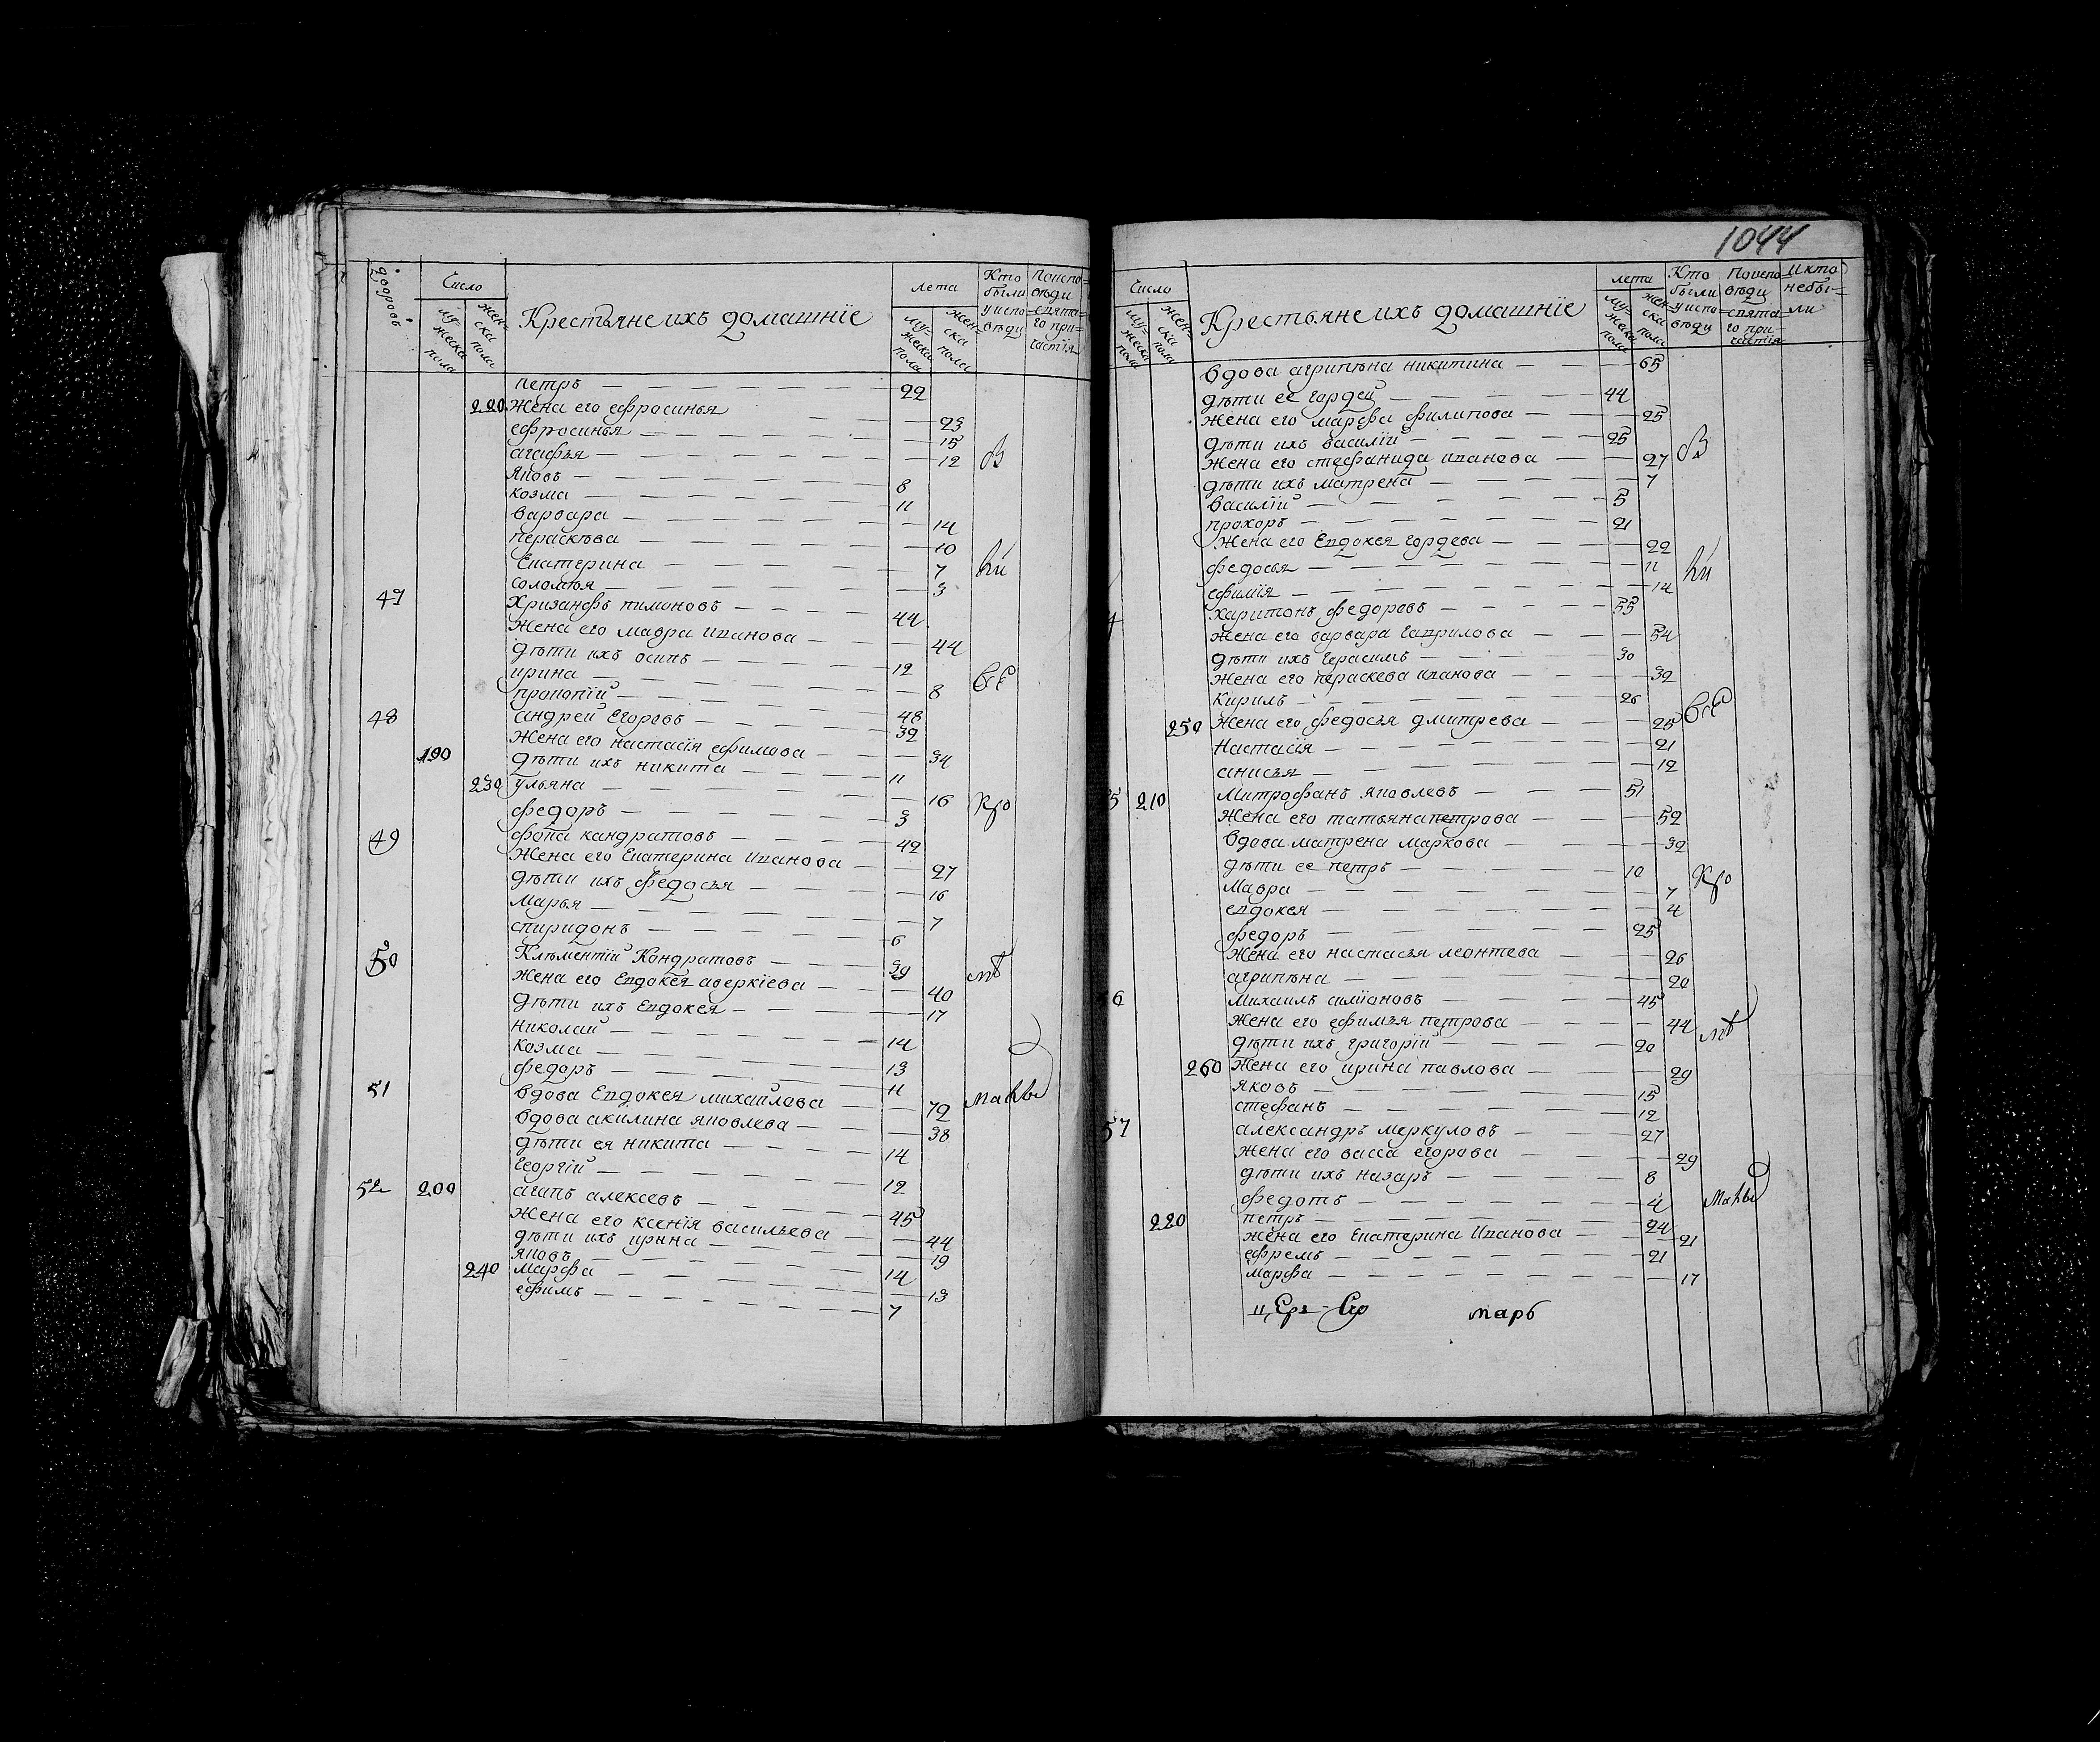 1044
дворовъ
Число
мужеска пола
женска пола
Крестьяне ихъ домашніе
лета
мужеска пола
женска пола
Кто были у исповѣди
Поисповѣди
петръ — 22
220 Жена его ефросинья — 23
ефросинья — 15
агафья — 12 в
яковъ — 8
козма — 11
варвара — 14
пераскѣва — 10
Екатерина — 7
соломѣя — 3
47 Хризанфъ пимоновъ — 44
Жена его мавра иванова — 44
дѣти ихъ осипъ — 12
ирина — 8
прокопій —
48 андрей Егоровъ — 48
39
Жена его настасія ефимова — 34
190 дѣти ихъ никита — 11
230 ульяна — 16
федоръ — 3
49 фока кандратовъ — 42
Жена его Екатерина Иванова — 27
дѣти ихъ федосья — 16
Марья — 7
спиридонъ — 6
50 Клѣментій Кондратовъ — 39
Жена его Евдокея аверкіева — 40
дѣти ихъ Евдокея — 17
Николай — 14
козма — 13
федоръ — 11
51 вдова Евдокея михайлова — 72
вдова акилина яковлева — 38
дѣти ея никита — 14
Георгій — 12
52 200 агапъ алексевъ — 45
Жена его ксенія васильева — 44
дѣти ихъ ирина — 19
яковъ — 14
240 марфа — 13
ефимъ — 7
Число
мужеска пола
женска пола
Крестьяне ихъ домашніе
лета
мужеска пола
женска пола
Кто были у исповѣди
Поисповѣди
И кто небыли
вдова агрипѣна никитина — 65
дѣти ее гордей — 44
жена его марфа филипова — 25
дѣти ихъ василій — 25 в
жена его стефанида иванова — 27
дѣти ихъ матрена — 7
василій — 5
прохоръ — 21
Жена его Евдокея гордева — 22
федосья — 11
ефимія — 14
харитонъ федоровъ — 55
жена его варвара гаврилова — 54
дѣти ихъ герасимъ — 30
жена его пераскева иванова — 32
Кирилъ — 26
250 жена его федосья дмитрева — 25
Настасія — 21
анисья — 12
5 210 Митрофанъ яковлевъ — 51
жена его татьяна петрова — 52
вдова матрена маркова — 32
дѣти ее петръ — 10
Мавра — 7
евдокея — 4
федоръ — 25
жена его настасья леонтева — 26
агрипѣна — 20
6 Михаилъ силіановъ — 45
жена его ефимья петрова — 44
дѣти ихъ григорій — 20
260 жена его ирина павлова — 29
яковъ — 15
стефанъ — 12
57 александръ меркуловъ — 27
жена его васса егорова — 29
дѣти ихъ назаръ — 8
федотъ — 4
220 петръ — 24
жена его Екатерина Иванова — 21
ефремъ — 21
марфа — 17